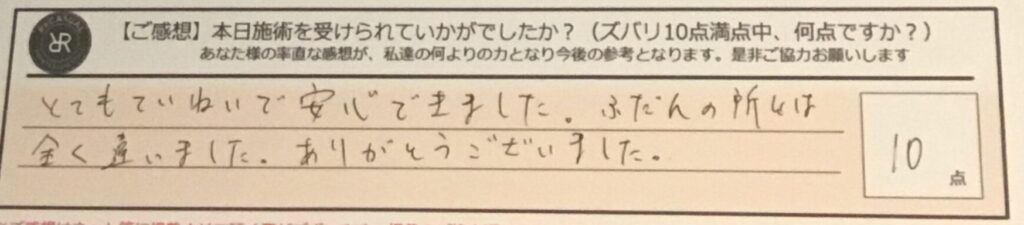 【ご感想】本日施術を受けられていかがでしたか？（ズバリ10点満点中、何点ですか？）
あなた様の率直な感想が、私達の何よりの力となり今後の参考となります。是非ご協力お願いします
とてもていねいで安心できました。ふだんの所とは
全く違いました。ありがとうございました。
10点